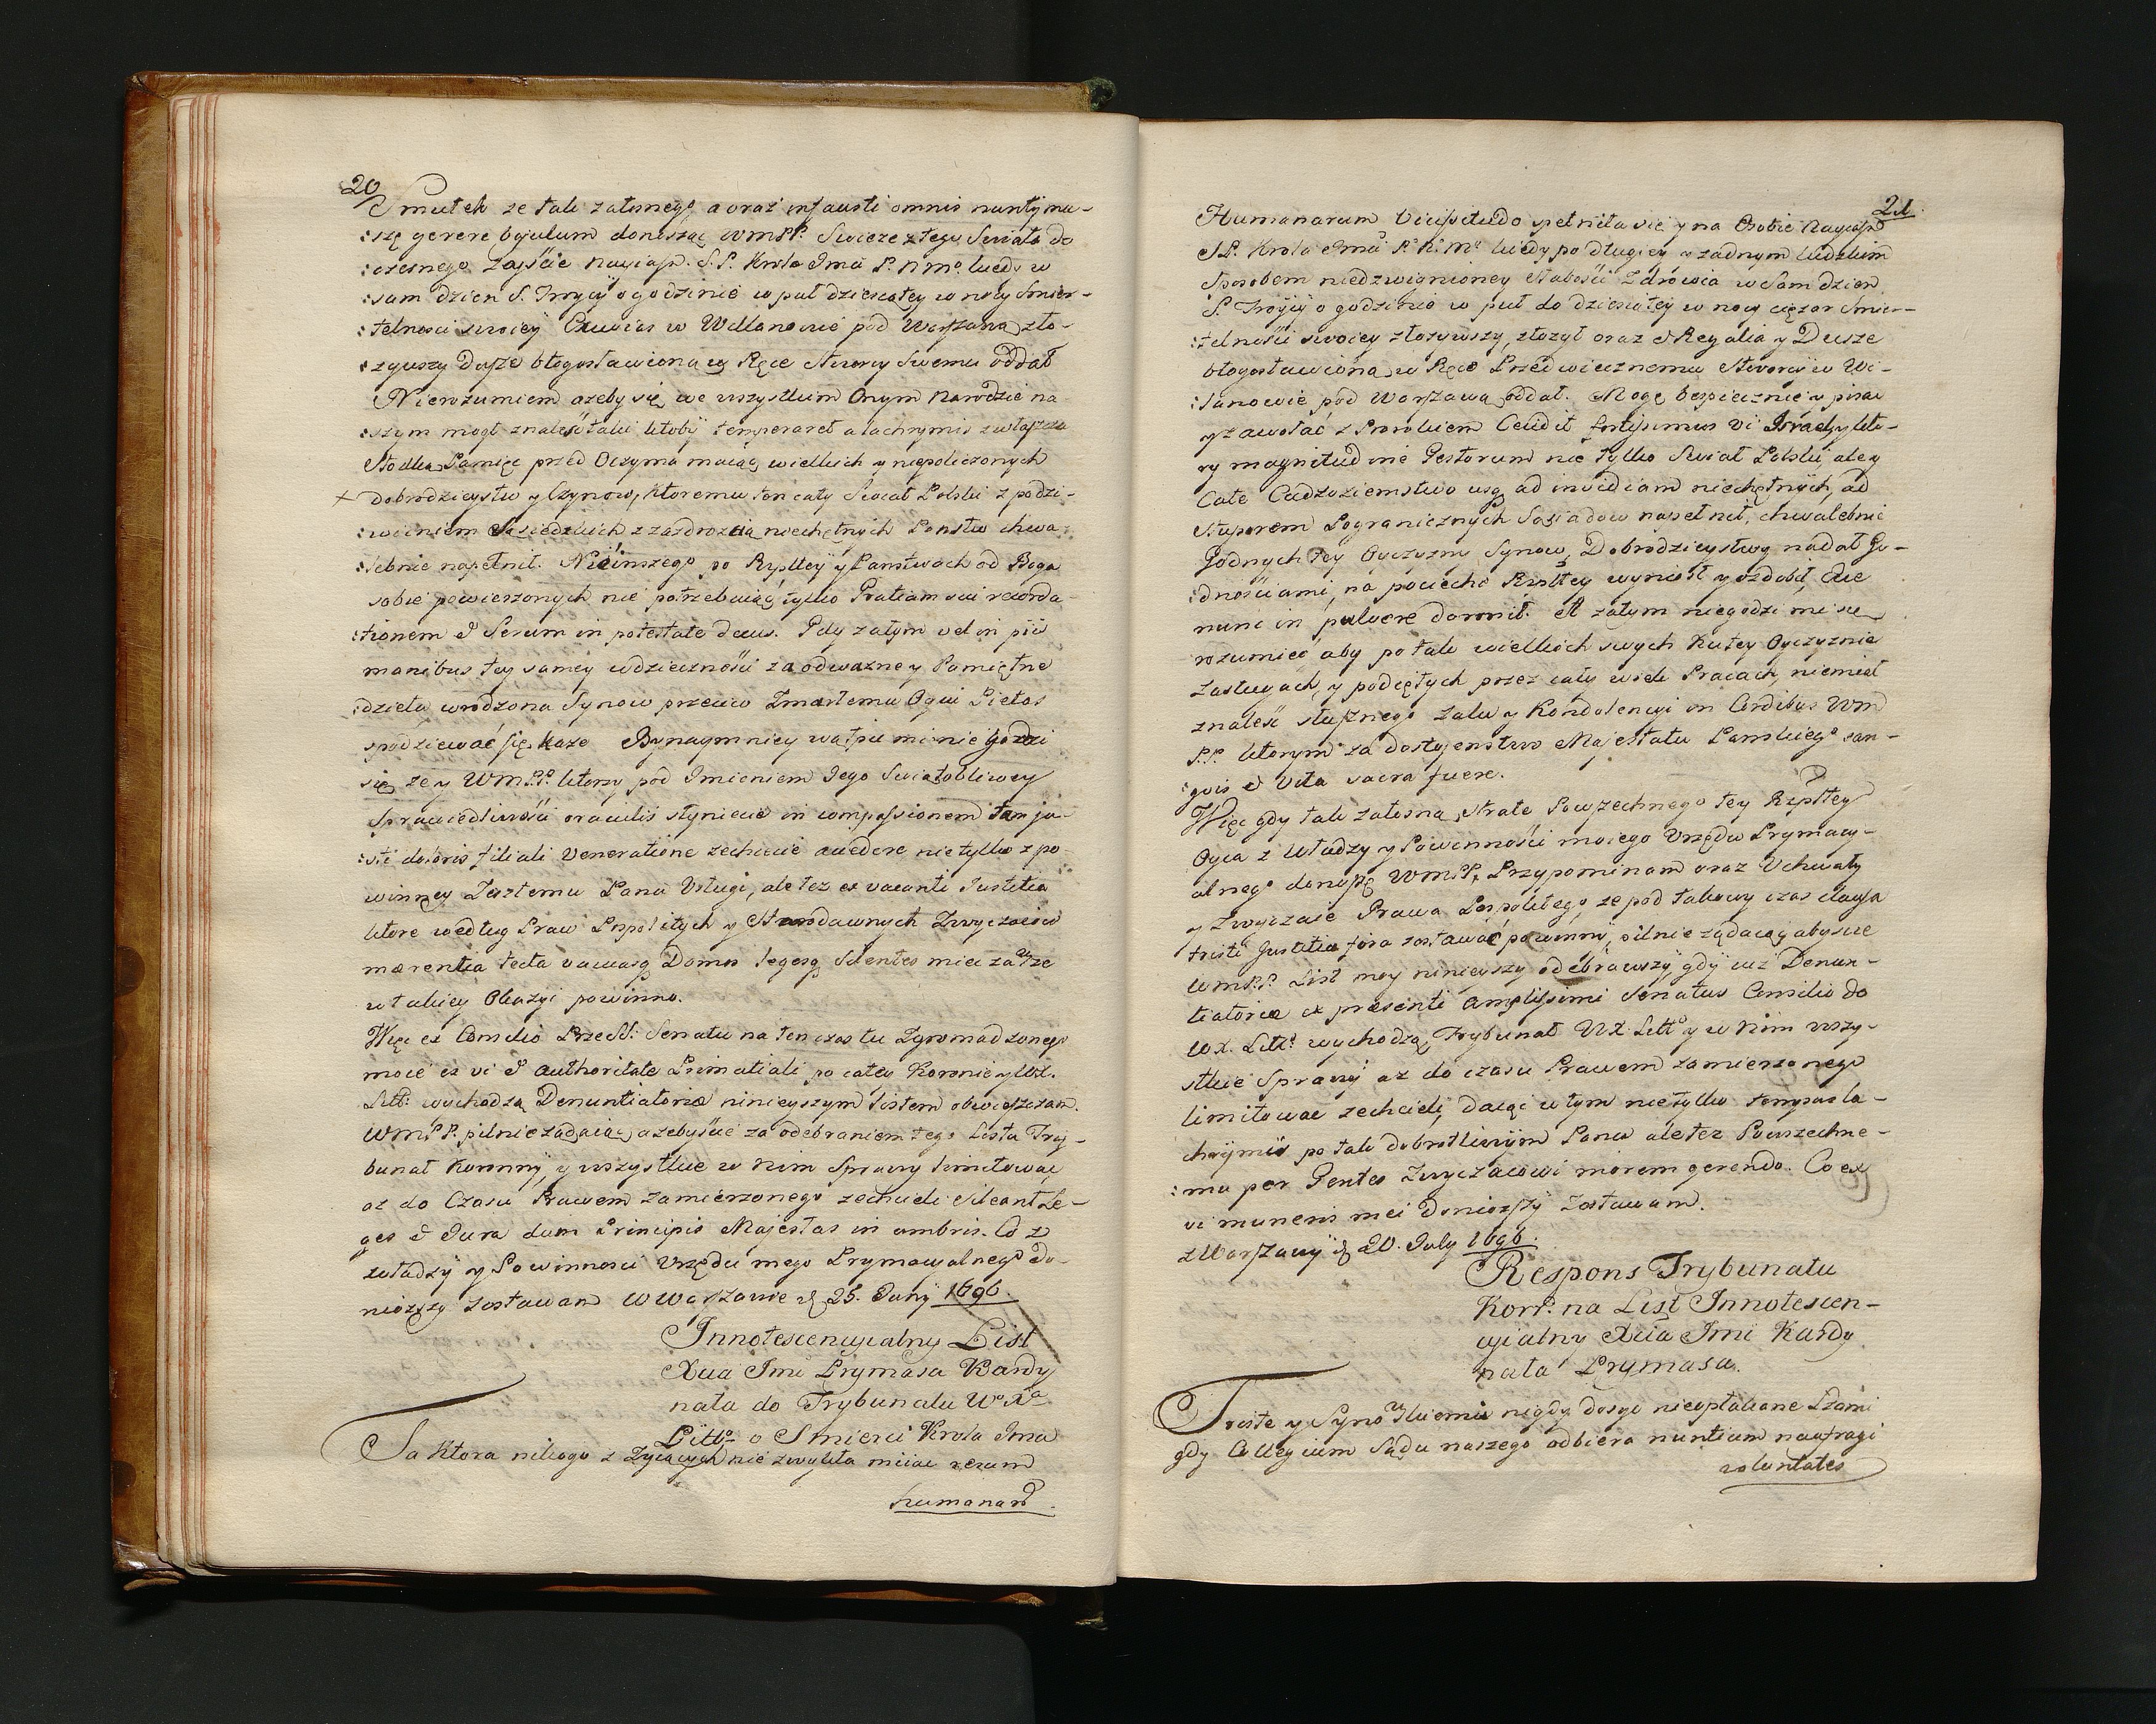 20
Smutek ze tak załosnego a oraz infausti omnis nuntij mu-
:szę gerere bajulum donosząc WmPP. Swieze z tego Swiata do
:czesnego Zejście Nayiasn. S. P. Krola Jmći P. N Mo. kiedy w
:sam dzien S. Troycy o godzinie w puł dziesiatey w nocy Smier-
:telnosci swoiey Exuvias w Willanowie pod Warszawą zło-
:zywszy Duszę błogosławioną w Ręce Stworcy Swemu oddał
Nierozumiem azeby się we wszystkim Onym Narodzie na
:szym mogł znaleść taki ktoby temperaret a lachrymis zwłaszcza
Słodką Pamięc przed Oczyma maiąc wielkich y niepoliczonych
+ dobrodzieystw y Czynow, ktoremi ten cały Swiat Polski z podzi-
:wieniem Sąsiedzkich z zazdrozcią niechętnych Panstw chwa-
:lebnie napełnił. Nic inszego po Rzpltey y Panstwach od Boga
sobie powierzonych nie potrzebuiąc tylko Gratiam sui recorda-
:tionem & Serum in potestate decus. Gdy zatym vel in pijs
manibus tey samey wdzieczności za odwazne y Pamiętne
:dzieła wrodzona Synow przeciw Zmarłemu Oycu Pietas
spodziewać się każe Bynaymniey wątpic mi nie godzi
się ze y WmPP. ktorzy pod Jmieniem Jego Swiątobliwey
Sprawiedliwości oraculis słyniecie in compassionem tam ju-
:sti doloris filiali Veneratione zechcecie accedere nie tylko z po-
winney Zmarłemu Panu Usługi, ale tez ex vacanti Justitia
ktore według Praw Pospolitych y Starodawnych Zwyczaiow
mærentia tecta vacuasq Domos legesq Silentes miec zawsze
w takiey Okazyi powinno.
Więc ex Consilio Prześ: Senatu na ten czas tu Zgromadzonego
moie ex vi & authoritate Primatiali po całey Koronie y WX.
Litt: wychodzą Denuntiatoriæ ninieyszym Listem obwieszczam.
WmPP. pilnie ządaiąc, azebyście za odebraniem tego Listu Try-
bunał Koronny, y wszystkie w nim Sprawy limitować
az do Czasu Prawem zamierzonego zechcieli sileant Le-
ges & Jura dum Principis Majestas in umbris. Co z
władzy y Powinnosci Urzędu mego Prymacyalnego do-
niozszy zostawam w Warszawie d. 25. Junij 1696.
Innotescencyalny List
Xcia Jmći Prymasa Kardy
nała do Trybunału Wo Xa
Litto o Smierci Krola Jmći
Ta Ktora nikogo z Zyiących nie zwykła miiac rerum
humanarū
21.
Humanarum Vicissitudo spełniła się y na Osobie Nayiasn
S.P. Krola Jmći P. N. Mo kiedy po długiey a zadnym ludzkim
Sposobem niedzwignioney słabości Zdrowia w Sam dzien
S. Troycy o godzinie w puł do dziesiątey w nocy ciężar Smier-
:telności swoiey złozywszy, złozył oraz & Regalia y Dusze
błogosławioną w Ręce Przedwiecznemu Stworcy w Wi-
:lanowie pod Warszawą oddał. Mogę bespiecznie y pisac
y zawołać z Prorokiem Cecidit fortissimus vi Israel, y kto-
ry magnitudine Gestorum nie tylko Swiat Polski, ale y
Całe Cudzoziemstwo usq ad invidiam niechętnych, ad
Stuporem Pogranicznych Sąsiadow napełnił, chwalebnie
Godnych tey Oyczyzny Synow, Dobrodzieystwy nadał Go-
:dnościami, na pociechę Rzpltey wyniosł y ozdobił, Ecce
nunc in pulvere dormit. A zatym niegodzi mi się
rozumieć aby po tak wielkich swych Ku tey Oyczyznie
Zasługach, y podiętych przez cały wiek Pracach, niemiał
znaleść słusznego zalu y Kondolencyi in Cordibus Wm
P.P. ktorym za dostojenstwo Majestatu Panskiego san-
:guis & Vita sacra fuere.
Więc gdy tak załosną stratę Powszechnego tey Rzpltey
Oyca z Władzy y Powinności moiego Urzędu Prymacy-
alnego donoszę WmPP. Przypominam oraz Uchwały
y Zwyczaie Prawa Pospolitego, ze pod takowy czas clausa
tristi Justitiæ fora zostawać powinny, pilnie ządaiąc abyscie
WmPP. List moy ninieyszy odebrawszy gdy iuż Denun-
tiatoriæ ex præsenti Amplissimi Senatus Consilio do
WX. Litto wychodzą Trybunał WX. Litto y w nim wszy-
stkie Sprawy az do czasu Prawem zamierzonego
limitowac zechcieli, daiąc w tym nie tylko tempus la-
chrymis po tak dobrotliwym Panu ale tez Powszechne-
:mu per Gentes Zwyczaiowi morem gerendo. Co ex
vi muneris mei doniozszy Zostawam.
z Warszawy d 20. July 1696.
Respons Trybunału
Korr: na List Innotescen-
cyalny Xcia Jmći Kardy
nała Prymasa.
Triste y Synowskiemi nigdy dosyc nieopłakane Łzami
gdy Collegium Sądu naszego odbiera nuntium naufragi
voluntates